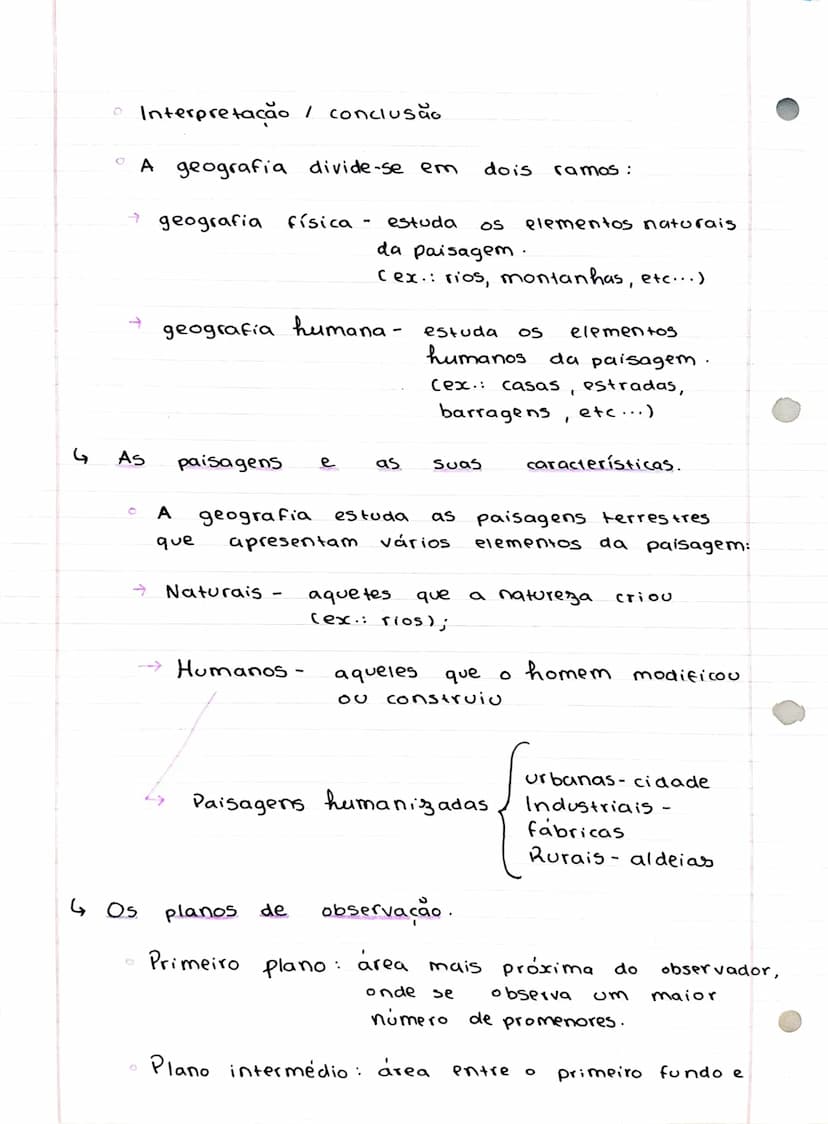 Interpretação / conclusão
A geografia divide-se em dois ramos:
→ geografia física - estuda os elementos naturais
da paisagem.
(ex.: rios, montanhas, etc...)
→ geografia humana - estuda os elementos
humanos da paisagem.
(ex.: casas, estradas,
barragens, etc...)
↳ As paisagens e as suas características.
A geografia estuda as paisagens terrestres
que apresentam vários elementos da paisagem:
→ Naturais - aqueles que a natureza criou
(ex.: rios);
→ Humanos - aqueles que o homem modificou
ou construiu
↳ Paisagens humanizadas
urbanas - cidade
Industriais -
fábricas
Rurais - aldeias
↳ Os planos de observação.
Primeiro plano: área mais próxima do observador,
onde se observa um maior
número de promenores.
Plano intermédio: área entre o primeiro fundo e